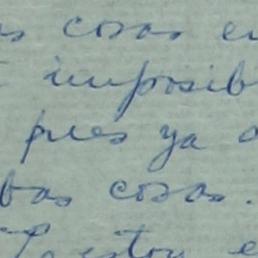 s cosas en
imposib
pues ya a
bas cosas.
estoy e